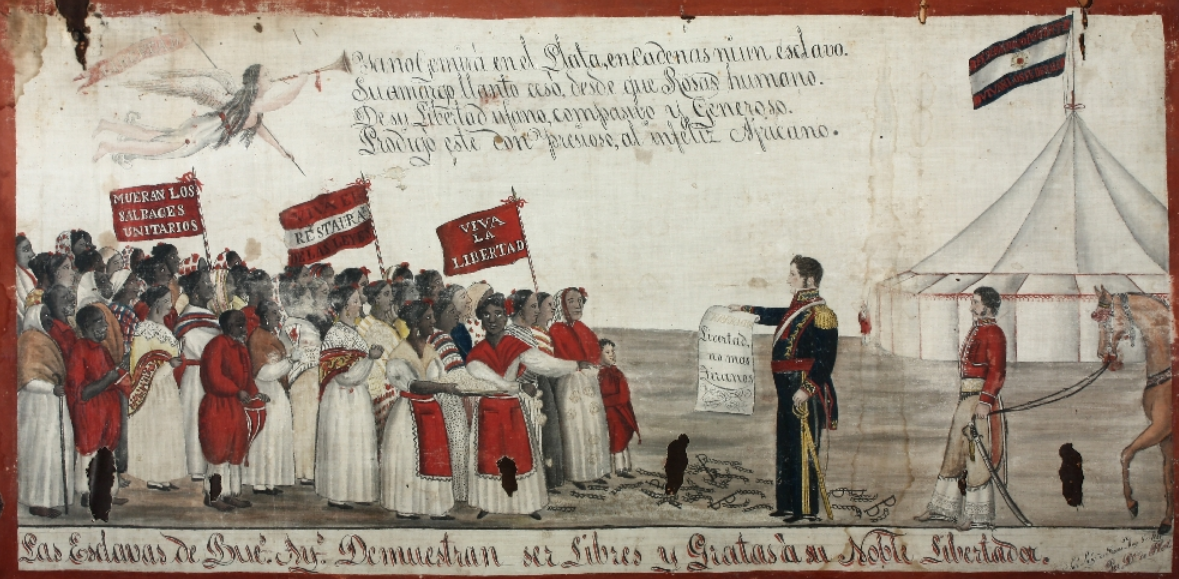 Ya no Gemirá en el Plata, en Cadenas ni un esclavo.
Su amargo llanto ceso, desde que Rosas humano.
De su Libertad ufano, compasivo y Generoso.
Prodigó este don presioso, al infeliz Africano.
MUERAN LOS
SALBAGES
UNITARIOS
VIVA EL
RESTAURA
DE LAS LEYES
VIVA
LA
LIBERTAD
Livertad,
no mas
Tiranos
Las Esclavas de Bueˢ. Ayˢ. Demuestran ser Libres y Gratas à su Noble Libertador.